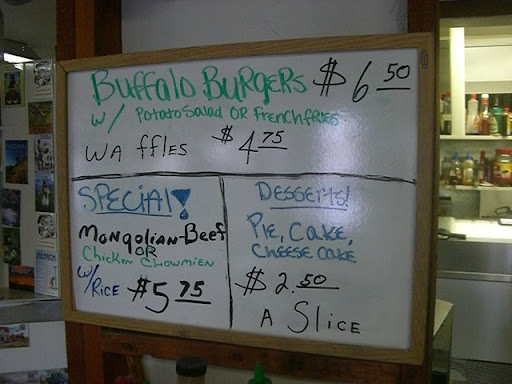 Buffalo Burgers $6 50
w/ Potato Salad OR French fries
WAffles $4 75
SPECIAL!
Mongolian-Beef
OR
Chicken Chowmien
w/Rice $5 75
Desserts!
Pie, Cake,
Cheese Cake
$2.50
A Slice